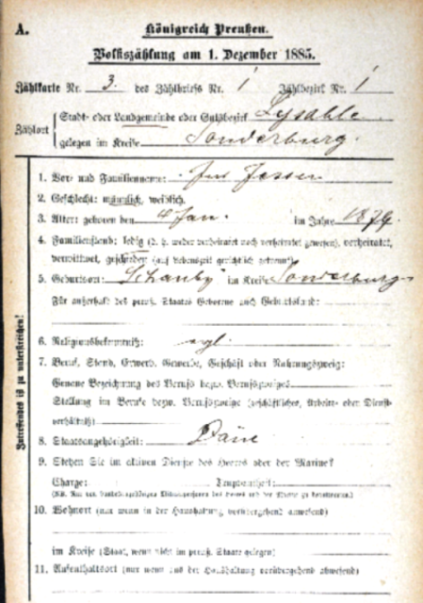 A.
Königreich Preußen.
Volkszählung am 1. Dezember 1885.
Zählkarte Nr. 3. des Zählbriefs Nr. 1 Zählbezirk Nr. 1
Zählort
Stadt- oder Landgemeinde oder Gutsbezirk Lysabbe
gelegen im Kreise Sonderburg.
1. Vor- und Familienname: Jessen
2. Geschlecht: männlich, weiblich.
3. Alter: geboren den Jan. im Jahre 1874
4. Familienstand: ledig (d. h. weder verheiratet noch verheiratet gewesen), verheiratet,
verwittwet, geschieden (auf Lebenszeit gerichtlich getrennt).
5. Geburtsort: Schauby im Kreise Sonderburg
Für außerhalb des preuß. Staats Geborene auch Geburtsland:
6. Religionsbekenntniß: evgl.
7. Beruf, Stand, Erwerb, Gewerbe, Geschäft oder Nahrungszweig:
Genaue Bezeichnung des Berufs bezw. Berufszweiges
Stellung im Berufe bezw. Berufszweige (geschäftliches, Arbeits- oder Dienst-
verhältniß)
8. Staatsangehörigkeit: Däne
9. Stehen Sie im aktiven Dienste des Heeres oder der Marine?
Charge: Truppentheil:
10. Wohnort (nur wenn in der Haushaltung vorübergehend anwesend)
im Kreise (Staat, wenn nicht im preuß. Staate gelegen)
11. Aufenthaltsort (nur wenn aus der Haushaltung vorübergehend abwesend)
Zutreffendes ist zu unterstreichen!